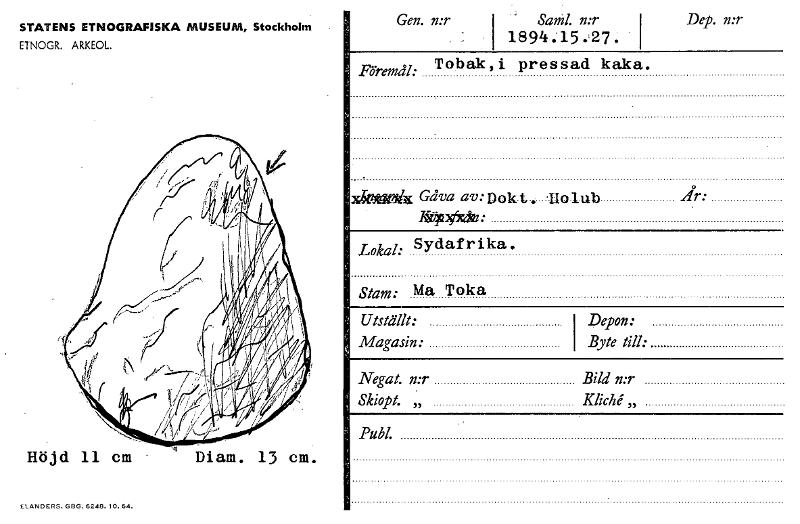 STATENS ETNOGRAFISKA MUSEUM, Stockholm
ETNOGR. ARKEOL.
Höjd 11 cm Diam. 13 cm.
ELANDERS. GBG. 6248. 10. 64.
Gen. n:r Saml. n:r Dep. n:r
1894.15.27.
Föremål: Tobak,i pressad kaka.
Gåva av: Dokt. Holub År:
Lokal: Sydafrika.
Stam: Ma Toka
Utställt: Depon:
Magasin: Byte till:
Negat. n:r Bild n:r
Skiopt. „ Kliché „
Publ.